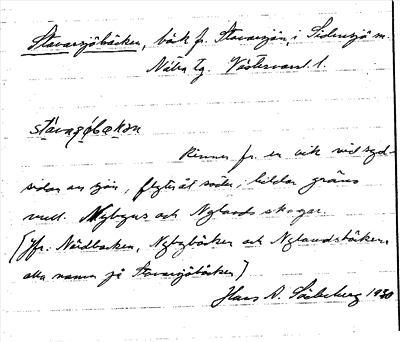 Stavarsjöbäcken, bäck fr. Stavarsjön, i Sidensjö sn.
Nätra tg. Västernorrl. l.
stàvaʂøbækɔn
Rinner fr. en vik vid syd-
sidan av sjön, flyter åt söder, bildar gräns
mell. Nybyns och Nylands skogar.
[Jfr. Nördbäcken, Nybybäcken och Nylandsbäcken,
alla namn på Stavarsjöbäcken]
Hans A. Söderberg 1930